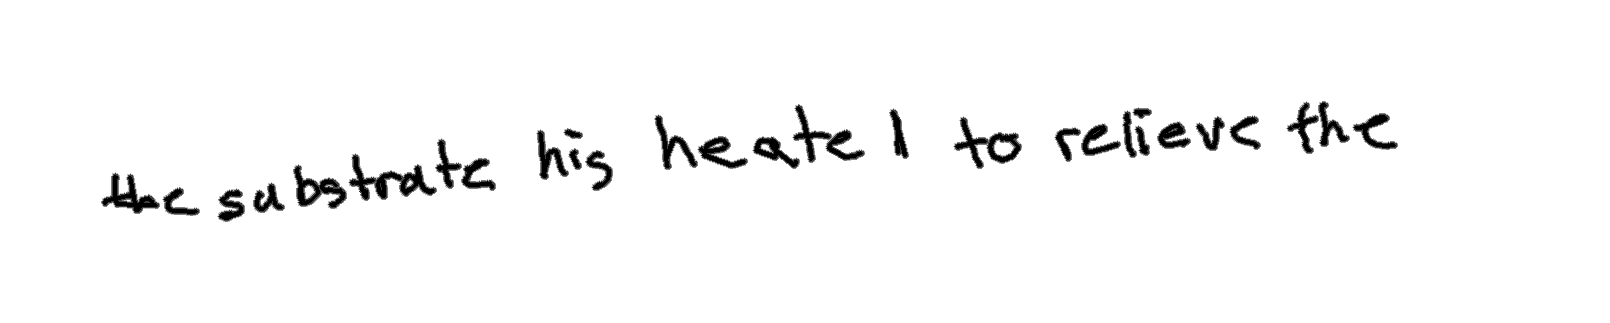 the substrate his heated to relieve the